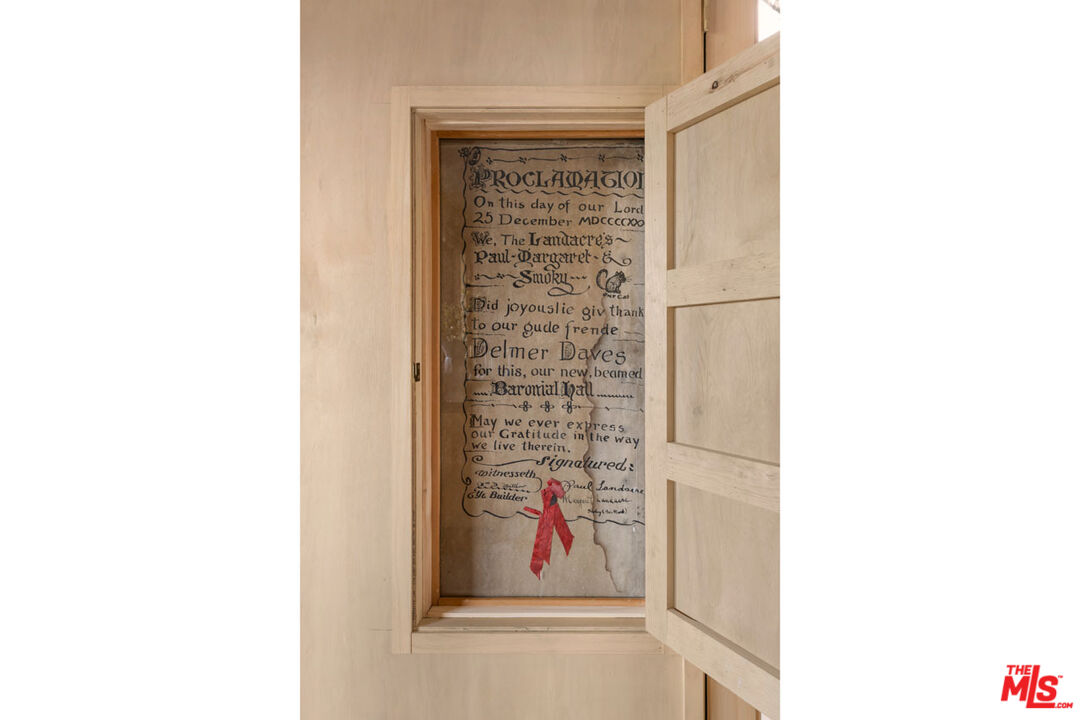 PROCLAMATION
On this day of our Lord
25 December MDCCCCXX
We, The Landacre's
Paul-Margaret-&
Smoky
Our Cat
Did joyouslie giv thank
to our gude frende
Delmer Daves
for this, our new, beamed
Baronial Hall
May we ever express
our Gratitude in the way
we live therein.
Signatured:
Witnesseth
Paul Landacre
Ye Builder
Margaret Landacre
THE
MLS™
.COM